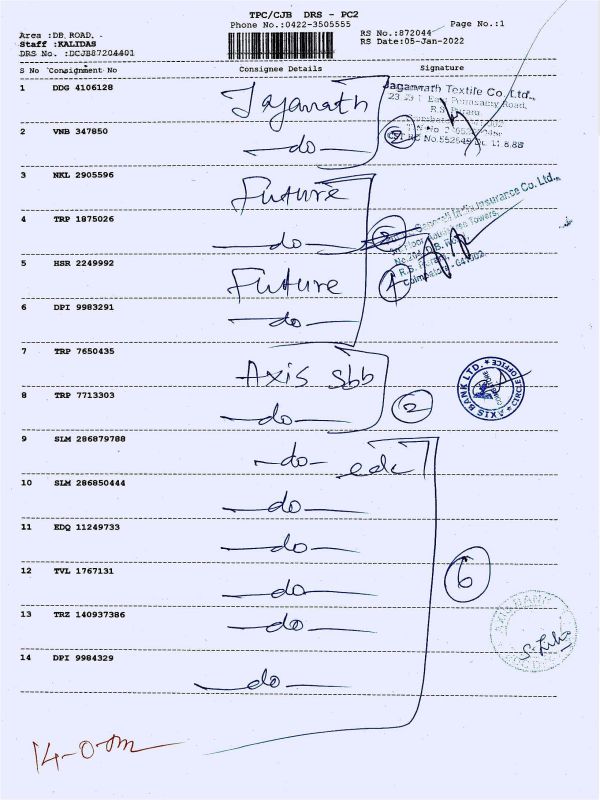 TPC/CJB DRS - PC2
Phone No.:0422-3505555
Page No.:1
Area :DB ROAD, -
Staff :KALIDAS
DRS No. :DCJB87204401
RS No.:872044
RS Date:05-Jan-2022
S No Consignment No Consignee Details Signature
1 DDG 4106128 Jaganath
Jagannath Textile Co Ltd.,
2 VNB 347850 —do—
2
3 NKL 2905596 Future
4 TRP 1875026 —do—
General India Insurance Co. Ltd.,
Coimbatore - 641002
5 HSR 2249992 Future
4
6 DPI 9983291 —do—
7 TRP 7650435 Axis sbb
AXIS BANK LTD. * CIRCLE OFFICE *
8 TRP 7713303 —do—
2
9 SLM 286879788 —do— edc
10 SLM 286850444 —do—
11 EDQ 11249733 —do—
12 TVL 1767131 —do—
6
13 TRZ 140937386 —do—
AXIS BANK
14 DPI 9984329 —do—
14-0-0m